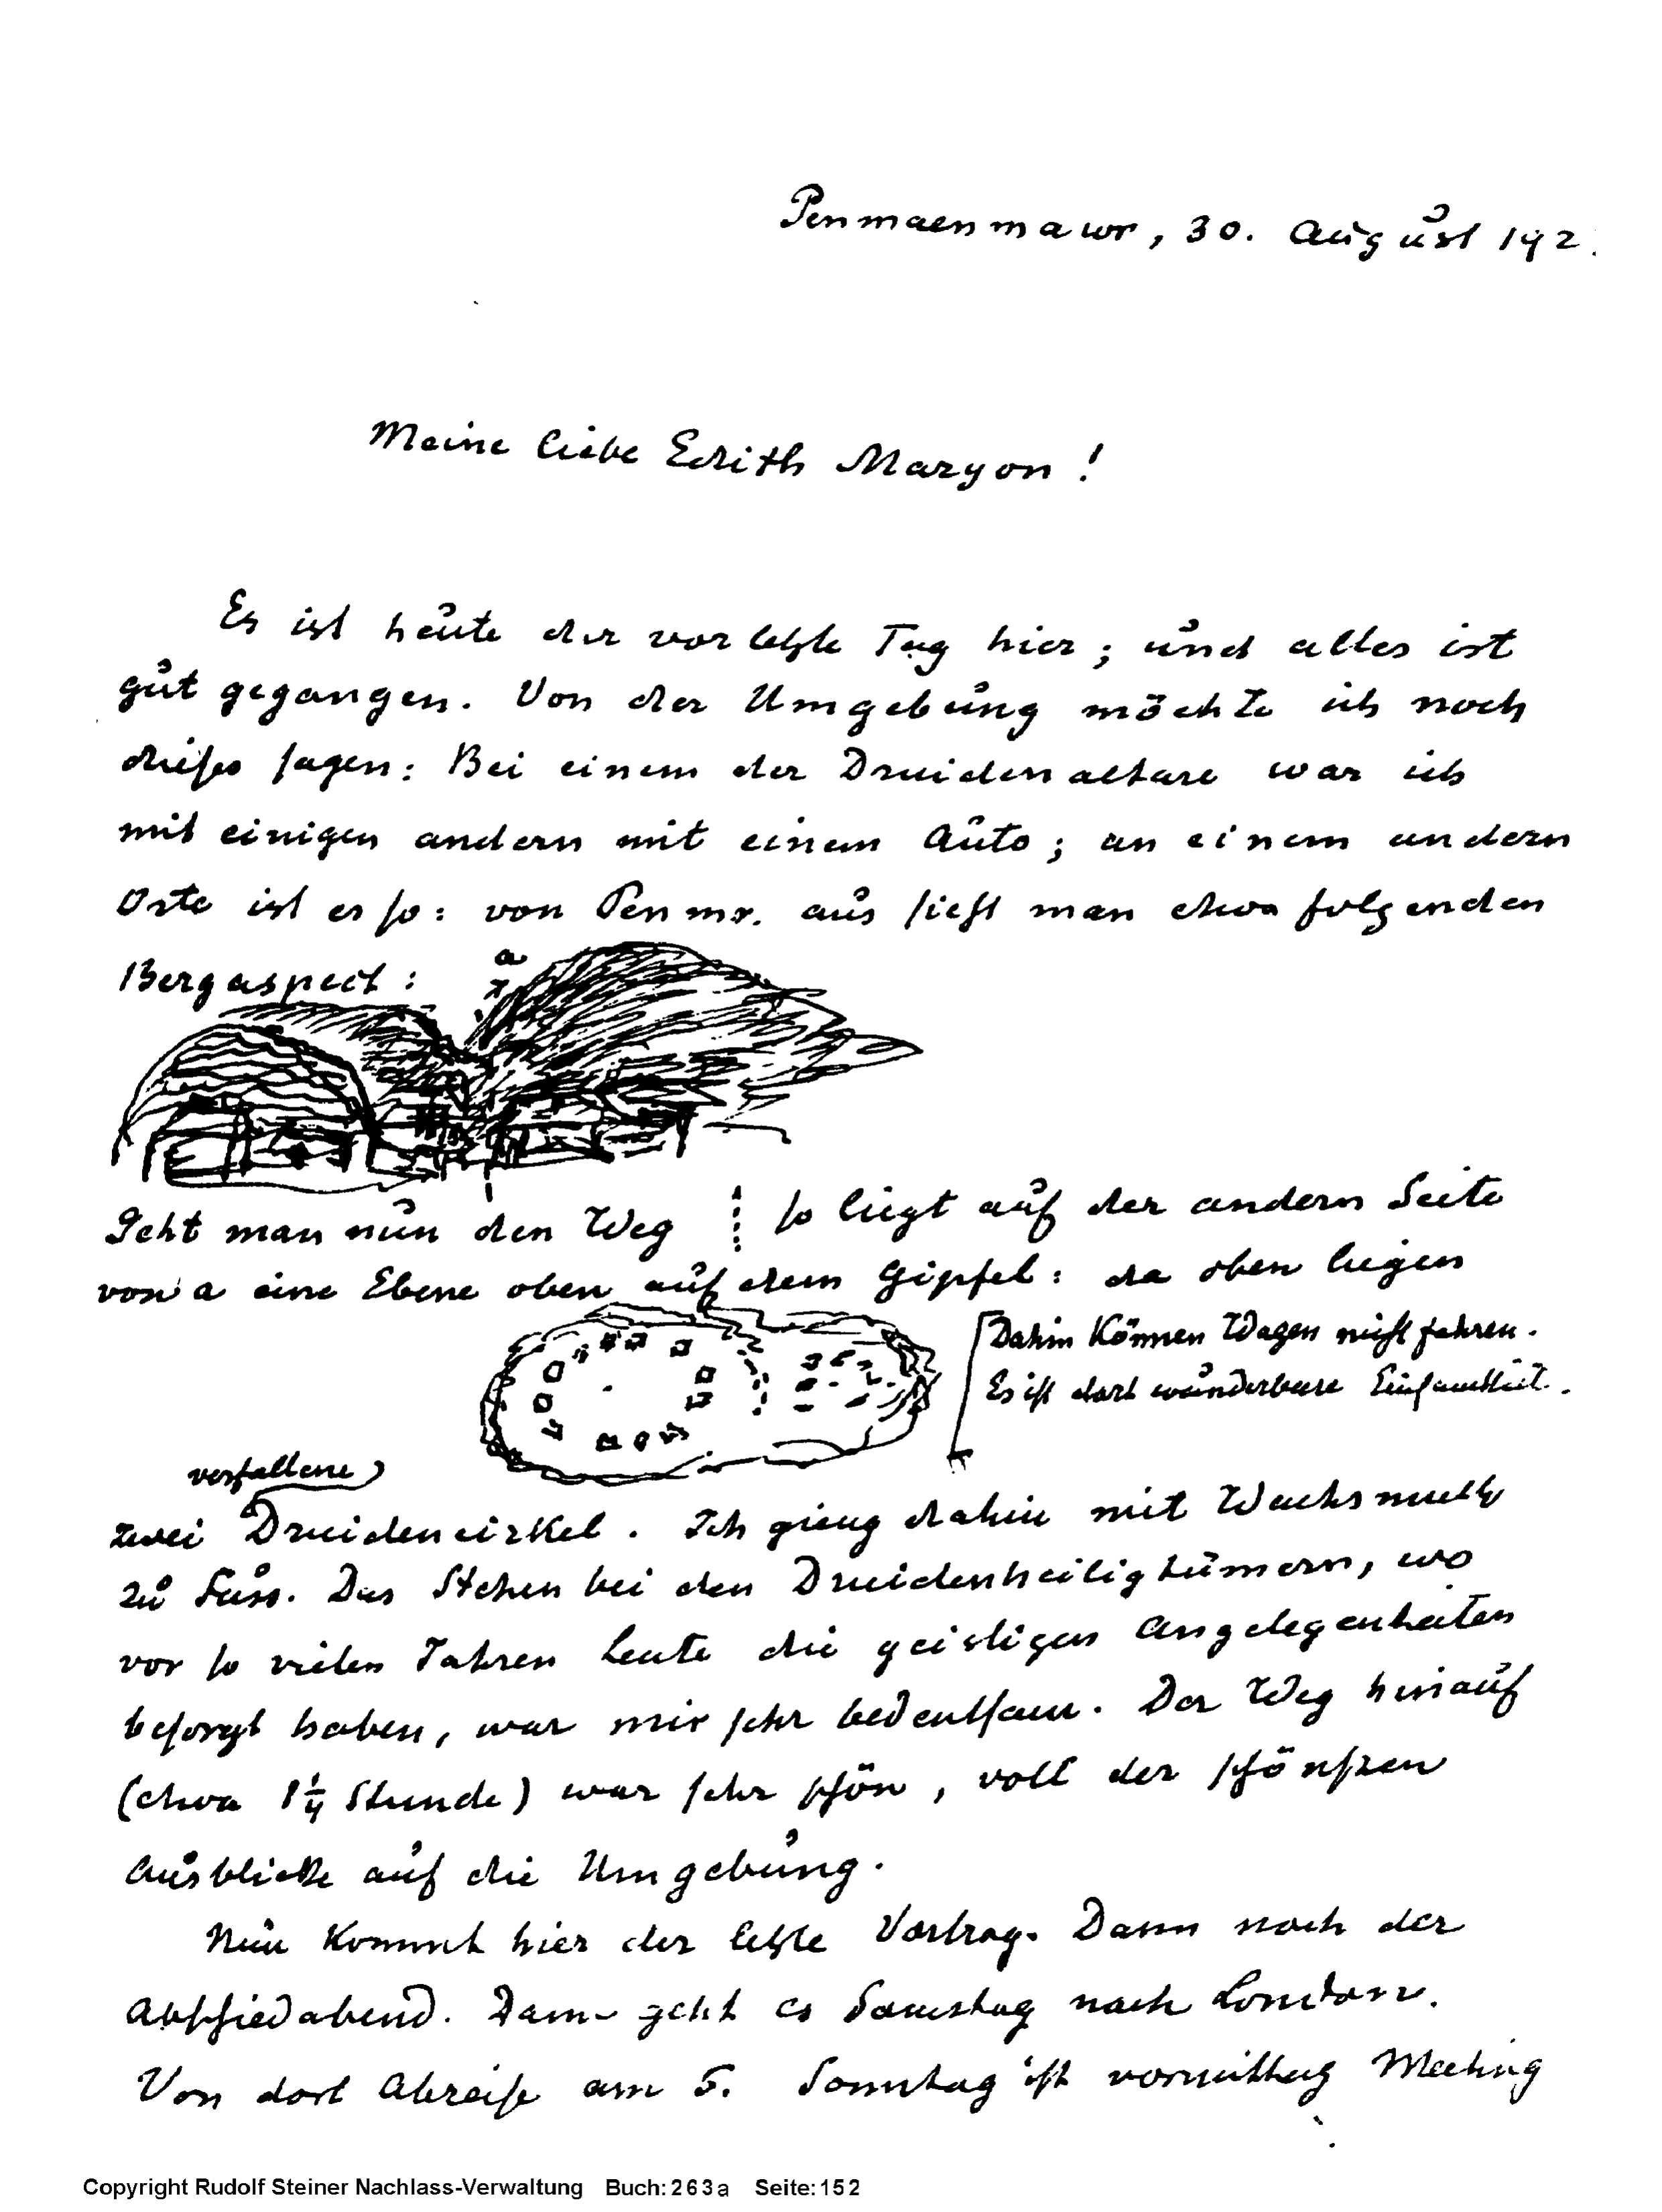 Penmaenmawr, 30. August 192
Meine liebe Edith Maryon!
Es ist heute der vorletzte Tag hier; und alles ist
gut gegangen. Von der Umgebung möchte ich noch
dieses sagen: Bei einem der Druidenaltare war ich
mit einigen andern mit einem Auto; an einem andern
Orte ist es so: von Penmr. aus sieht man etwa folgenden
Bergaspect:
a
x
Geht man nun den Weg so liegt auf der andern Seite
von a eine Ebene oben auf dem Gipfel: da oben liegen
Dahin können Wagen nicht fahren.
Es ist dort wunderbare Einsamkeit.
verfallene
zwei Druidencirkel. Ich gieng dahin mit Wachsmuth
zu Fuss. Das Stehen bei den Druidenheiligtümern, wo
vor so vielen Jahren Leute die geistigen Angelegenheiten
besorgt haben, war mir sehr bedeutsam. Der Weg hinauf
(etwa 1 1/4 Stunde) war sehr schön, voll der schönsten
Ausblicke auf die Umgebung.
Nun kommt hier der letzte Vortrag. Dann noch der
Abschiedabend. Dann geht es Samstag nach London.
Von dort Abreise am 5. Sonntag ist vormittag Meeting
Copyright Rudolf Steiner Nachlass-Verwaltung Buch:263a Seite:152